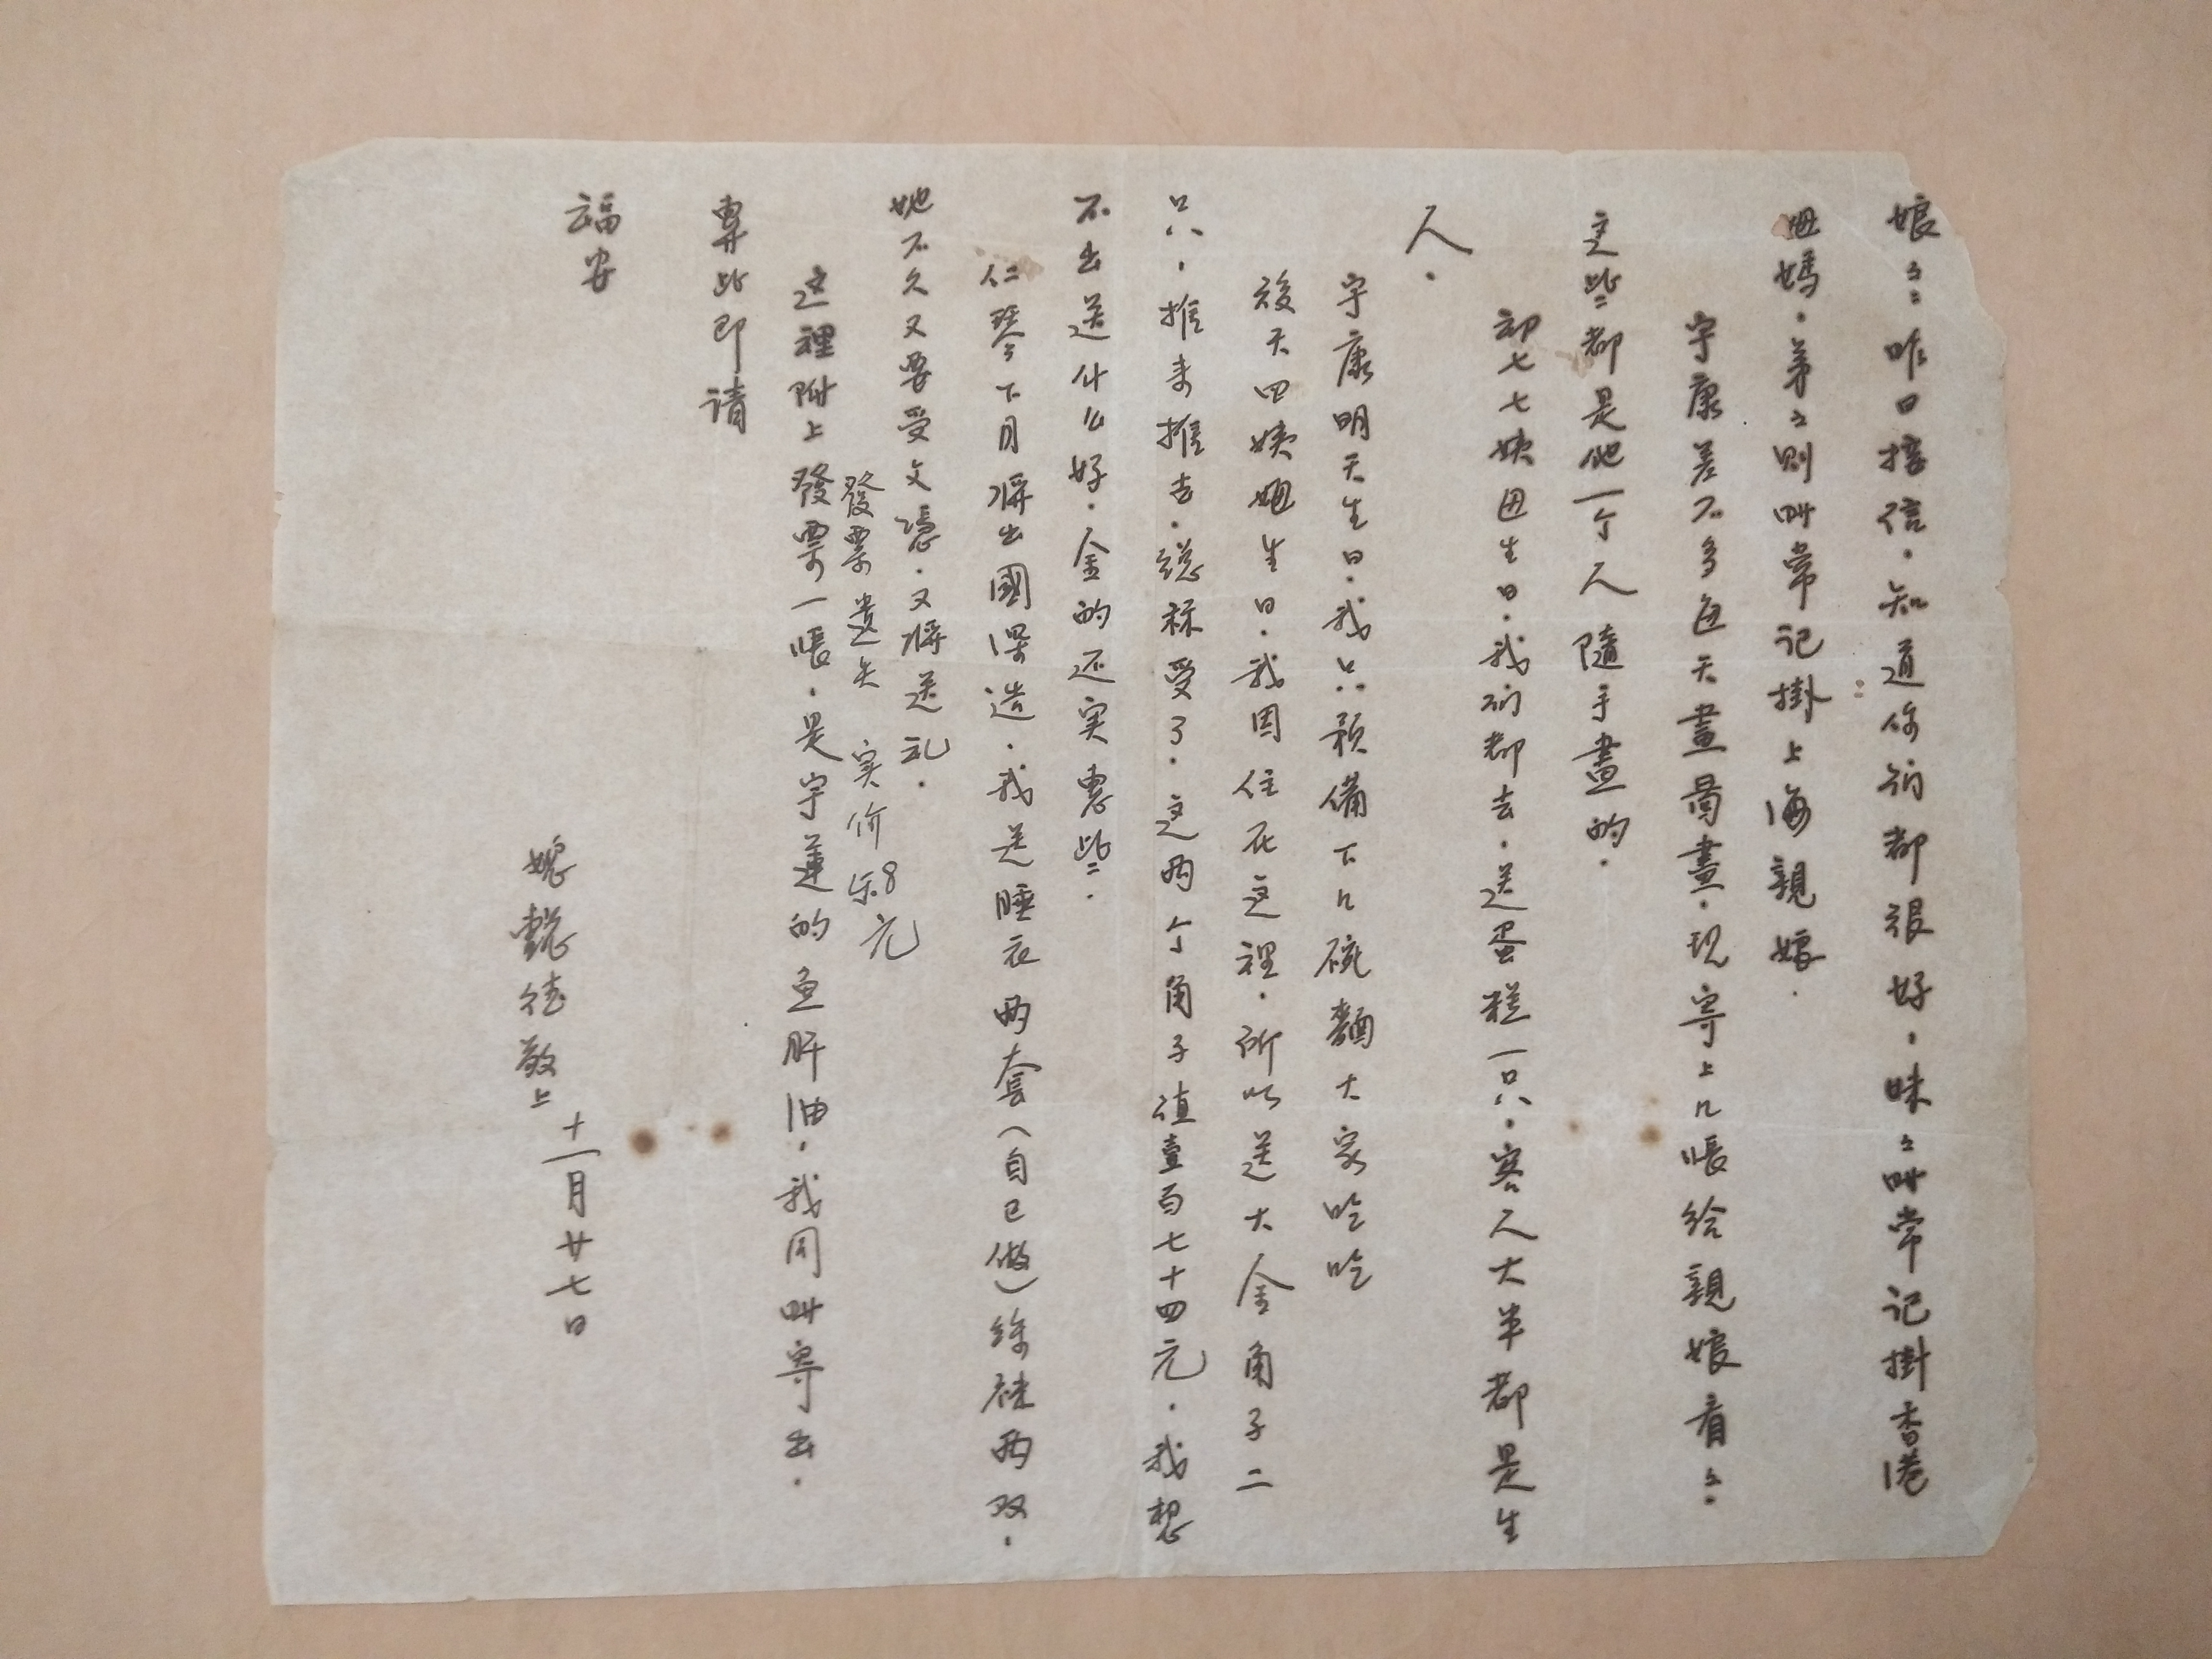 娘々：昨日接信．知道你们都很好．妹々叫常记掛香港
姆媽．弟々则叫常记掛上海親娘．
宇康差不多每天畫啚畫．现寄上几張给親娘看々：
这些都是他一个人隨手畫的．
初七七姨囡生日．我们都去．送蛋糕一只．客人大半都是生
人．
宇康明天生日．我只預備下几碗麵大家吃吃
後天四姨姆生日．我因住在这裡．所以送大金角子二
只．推来推去．總祘受了．这两个角子值壹百七十四元．我想
不出送什么好．金的还实惠些．
仁琴下月將出國深造．我送睡衣两套（自己做）絲袜两双．
她不久又要受文憑．又將送礼．
發票遗失 实价 8元
这裡附上發票一張．是宇蓮的鱼肝油．我同叫寄出．
專此即请
福安
媳懿德敬上 十一月廿七日